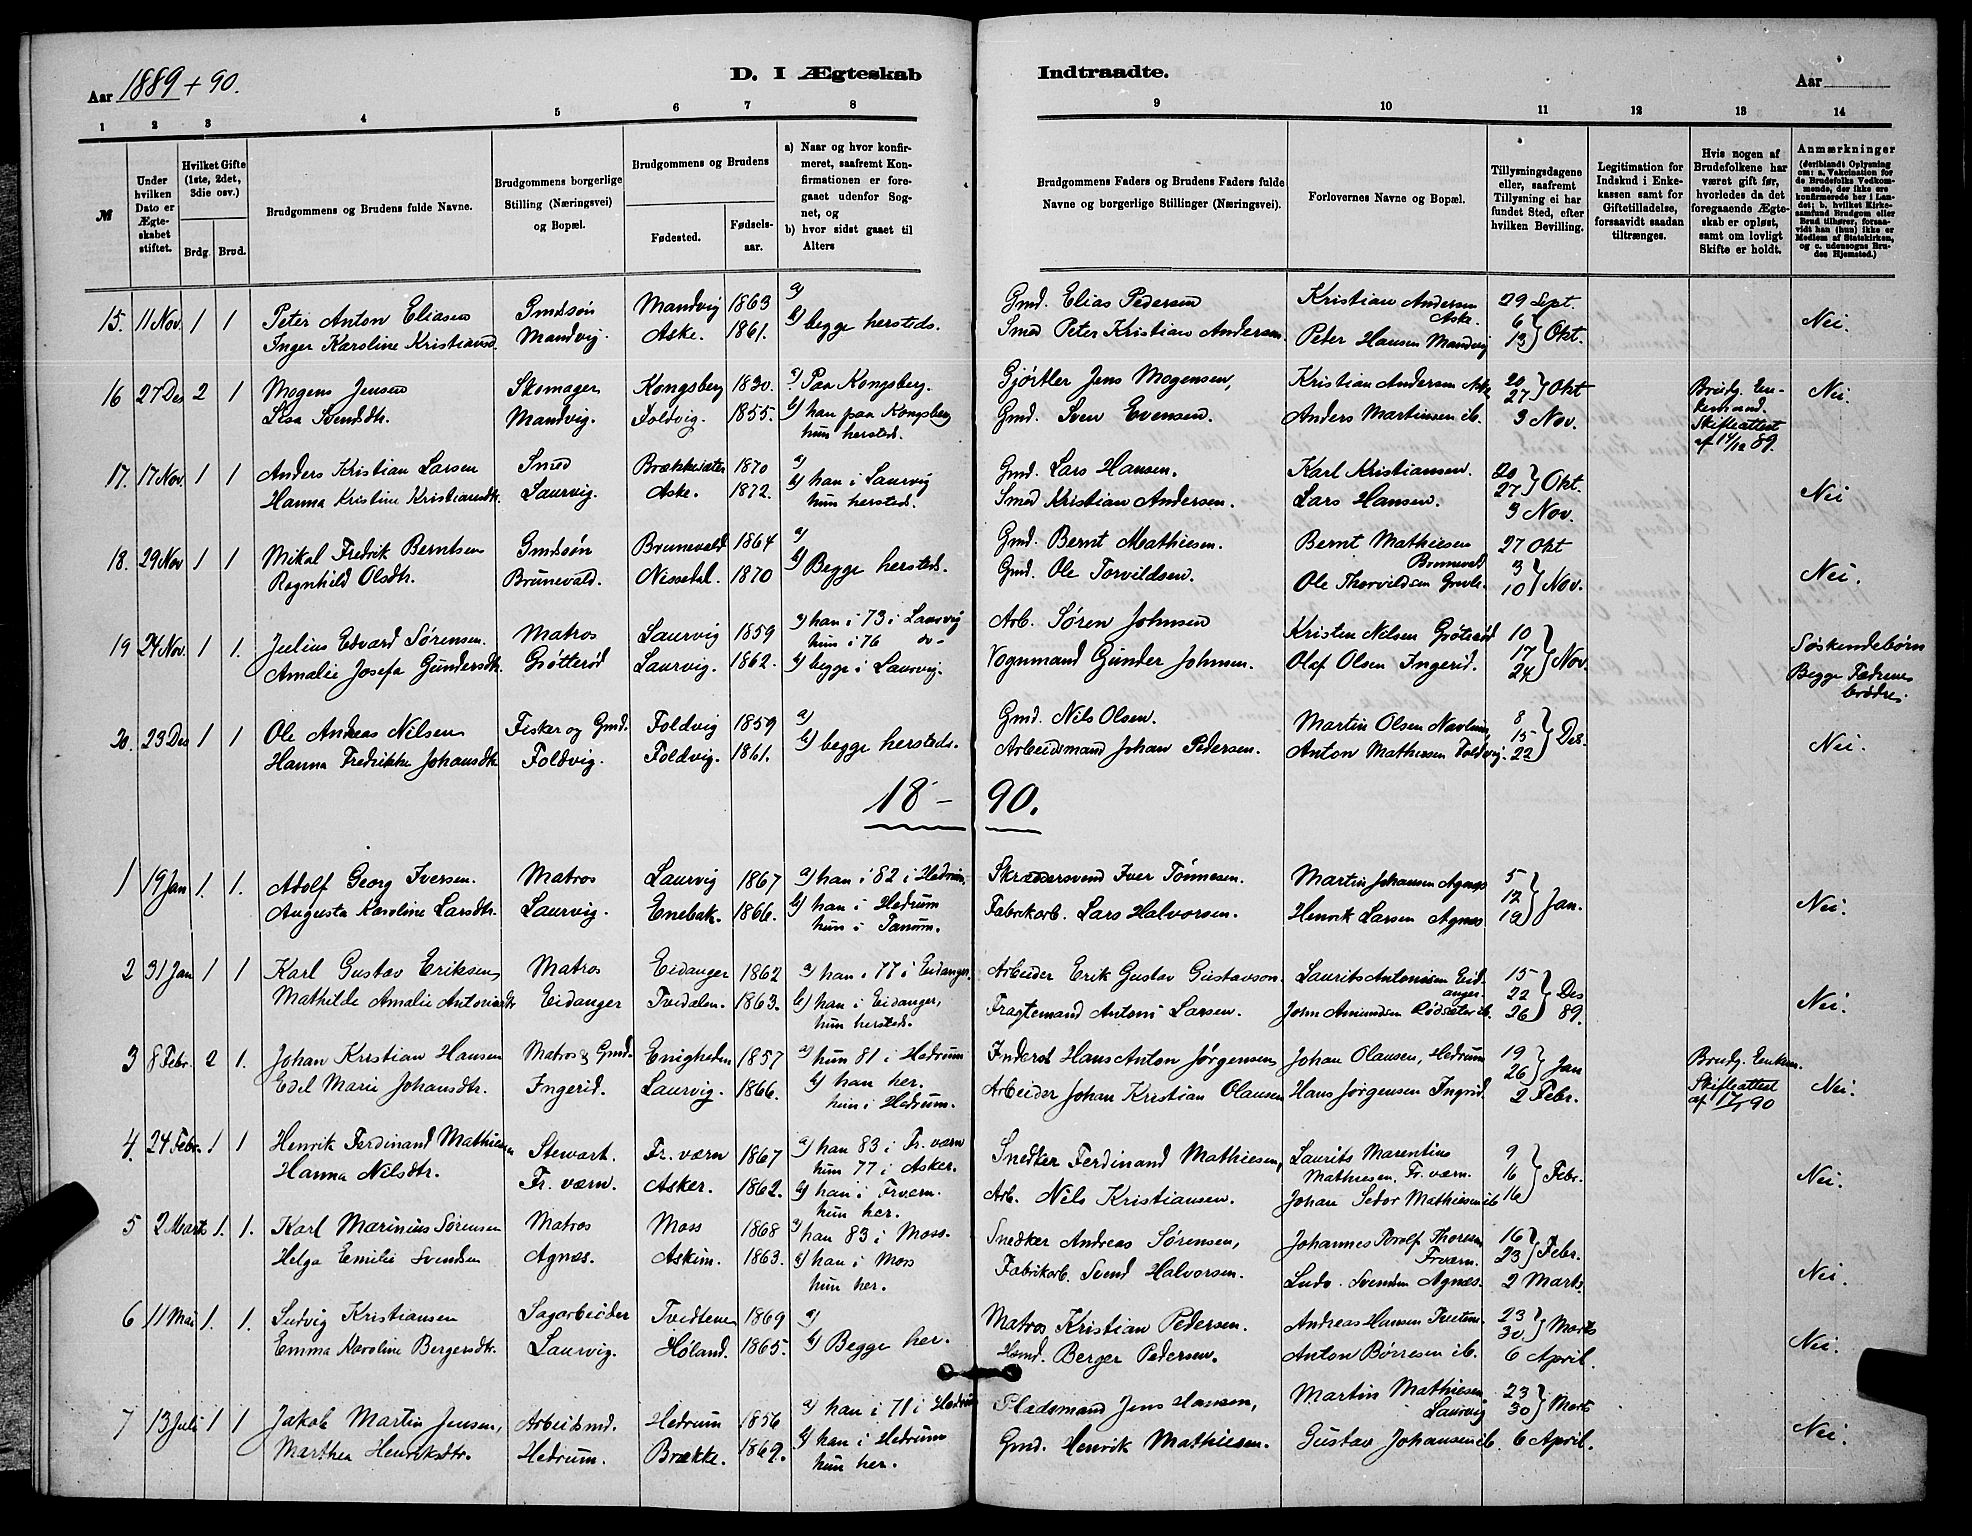 Aar 1889 + 90.
D. I Ægteskab Indtraadte.
Aar
1 2 3 4 5 6 7 8 9 10 11 12 13 14
№
Under hvilken Dato er Ægteskabet stiftet.
Hvilket Gifte (1ste, 2det, 3die osv.)
Brdg. Brud.
Brudgommens og Brudens fulde Navne.
Brudgommens borgerlige Stilling (Næringsvei) og Bopæl.
Brudgommens og Brudens
Fødested.
Fødselsaar.
a) Naar og hvor konfirmeret, saafremt Konfirmationen er foregaaet udenfor Sognet, og
b) hvor sidst gaaet til Alters
Brudgommens Faders og Brudens Faders fulde Navne og borgerlige Stillinger (Næringsvei).
Forlovernes Navne og Bopæl.
Tillysningsdagene eller, saafremt Tillysning ei har fundet Sted, efter hvilken Bevilling.
Legitimation for Indskud i Enkekassen samt for Giftetilladelse, forsaavidt saadan tiltrænges.
Hvis nogen af Brudefolkene har været gift før, hvorledes da det foregaaende Ægteskab er opløst, samt om lovligt Skifte er holdt.
Anmærkninger (deriblandt Oplysning om: a. Vakcination for de Brudefolks Vedkommende, der ikke ere konfirmerede her i Landet; b. hvilket Kirkesamfund Brudgom eller Brud tilhører, forsaavidt han (hun) ikke er Medlem af Statskirken, og c. udensogns Brudes Hjemsted.)
15. 11 Nov. 1 1 Peter Anton Eliasen Gmdsøn Mandvig 1863 a) Gmd. Elias Pedersen Kristian Andersen Aske. 29 Sept.
Inger Karoline Kristiansd. Mandvig. Aske. 1861. b) begge hersteds. Smed Peter Kristian Andersen Peter Hansen Mandvig 6 13 } Okt. Nei.
16 27 Des 2 1 Mogens Jensen Skomager Kongsberg 1830. a) Paa Kongsberg. Gjørtler Jens Mogensen, Kristian Andersen Aske 20 27 } Okt Brudg. Enkemand. Nei.
Lisa Svendsdtr. Mandvig. Foldvig. 1855. b) han paa Kongsberg hun hersteds. Gmd. Sven Evensen. Anders Martinsen ib. 3 Nov. Skifteattest af 14/12 89.
17. 17 Nov. 1 1 Anders Kristian Larsen Smed 1870 a) Gmd. Lars Hansen. Karl Kristiansen. 20 27 } Okt.
Hanna Kristine Kristiansdt. Laurvig. Aske. 1872. b) han i Laurvig hun hersteds. Smed Kristian Andersen. Lars Hansen. 3 Nov. Nei
18. 29 Nov 1 1 Mikal Fredrik Berntsen Gmdsøn Brunevald 1864 a) Gmd. Bernt Mathiesen. Bernt Mathiesen Brunevald 27 Okt
Ragnhild Olsdtr. Brunevald. Nissedal. 1870 b) Begge hersteds. Gmd. Ole Torvildsen. Ole Thorvildsen 3 10 } Nov. Nei.
19 24 Nov. 1 1. Julius Edvard Sørensen. Matros Laurvig 1859 a) han i 73 i Laurvig hun i 76 do- Arb. Søren Johnsen Kristen Nilsen Grøterød 10 17 24 } Nov. Søskendebørn
Amalie Josefa Gundersdt. Grøtterød Laurvig. 1862. b) begge i Laurvig. Vognmand Gunder Johnsen. Olaf Olsen Ingerid. Begge Fædrene brødre.
20. 23 Des 1 1 Ole Andreas Nilsen Fisker og Gmd. Foldvig 1859 a) Gmd. Nils Olsen. Martin Olsen 8 15 22 } Des.
Hanna Fredrikke Johansdt. Foldvig. Foldvig. 1861. b) begge hersteds. Arbeidsmand Johan Pedersen. Anton Mathiesen Foldvig. Nei.
18- 90.
1 19 Jan 1. 1. Adolf Georg Iversen. Matros Laurvig 1867 a) han i 82 i Hedrum. Skræddersvend Iver Tønnesen. Martin Johansen Agnes 5 12 19 } Jan.
Augusta Karoline Larsdtr. Laurvig. Enebak. 1866. b) han i Hedrum hun i Tanum. Fabrikarb. Lars Halvorsen. Henrik Larsen Agnes Nei.
2 31 Jan 1 1 Karl Gustav Eriksen Matros Eidanger 1862 a) han i 77 i Eidanger. Arbeider Erik Gustav Gustavson. Laurits Antonisen Eidanger. 15 22 26 } Des 89.
Mathilde Amalie Antonisdtr Eidanger Tvedalen. 1863. b) han i Eidanger, hun hersteds. Fragtemand Antoni Larsen. John Amundsen Rødsæter ib. Nei.
3 8 Febr. 2 1. Johan Kristian Hansen Matros & Gmd. Enigheden 1857 a) hun 81 i Hedrum Inderst Hans Anton Jørgensen Johan Olausen, Hedrum 19 26 } Jan Brudg. Enkem.
Edel Marie Johansdtr. Ingerid. Laurvig. 1866. b) han her. hun i Hedrum. Arbeider Johan Kristian Olausen Hans Jørgensen Ingrid 2 Febr. Skifteattest af 17/1 90 Nei.
4. 24 Febr. 1 1 Henrik Ferdinand Mathiesen Stewart. Fr. værn 1867 a) han 83 i Fr. værn hun 77 i Asker. Snedker Ferdinand Mathiesen, Laurits Marentius Mathiesen. Fr. værn. 9 16 16 } Febr.
Hanna Nilsdtr. Fr. værn. Asker. 1862. b) han i Frværn. hun her. Arb. Nils Kristiansen. Johan Sedor Mathiesen ib Nei.
5 2 Marts 1. 1. Karl Marinius Sørensen Matros Moss 1868 a) han 83 i Moss. Snedker Andreas Sørensen, Johannes Thorsen Frværn. 16 23 } Febr.
Helga Emilie Svendsen Agnes. Askim. 1863. b) han i Moss hun her. Fabrikarb. Svend Halvorsen. Ludv. Svendsen Agnes. 2 Marts. Nei.
6 11 Mai 1. 1. Ludvig Kristiansen Sagarbeider Tvedtene 1869 a) Matros Kristian Pedersen. Andreas Hansen Tvetene. 23 30 } Marts
Emma Karoline Bergersdtr. Laurvig. Høland. 1865. b) Begge her. Hsmd. Berger Pedersen. Anton Børresen ib. 6 April. Nei.
7 13 Juli 1 1 Jakob Martin Jensen, Arbeidsmd. Hedrum 1856 a) han i 71 i Hedrum Pladsmand Jens Hansen, Martin Mathiesen Laurvig 23 30 } Marts
Marthea Henriksdtr. Hedrum. Brække. 1869. b) han i Hedrum hun her. Gmd. Henrik Mathiesen. Gustav Johansen ib. 6 April. Nei.